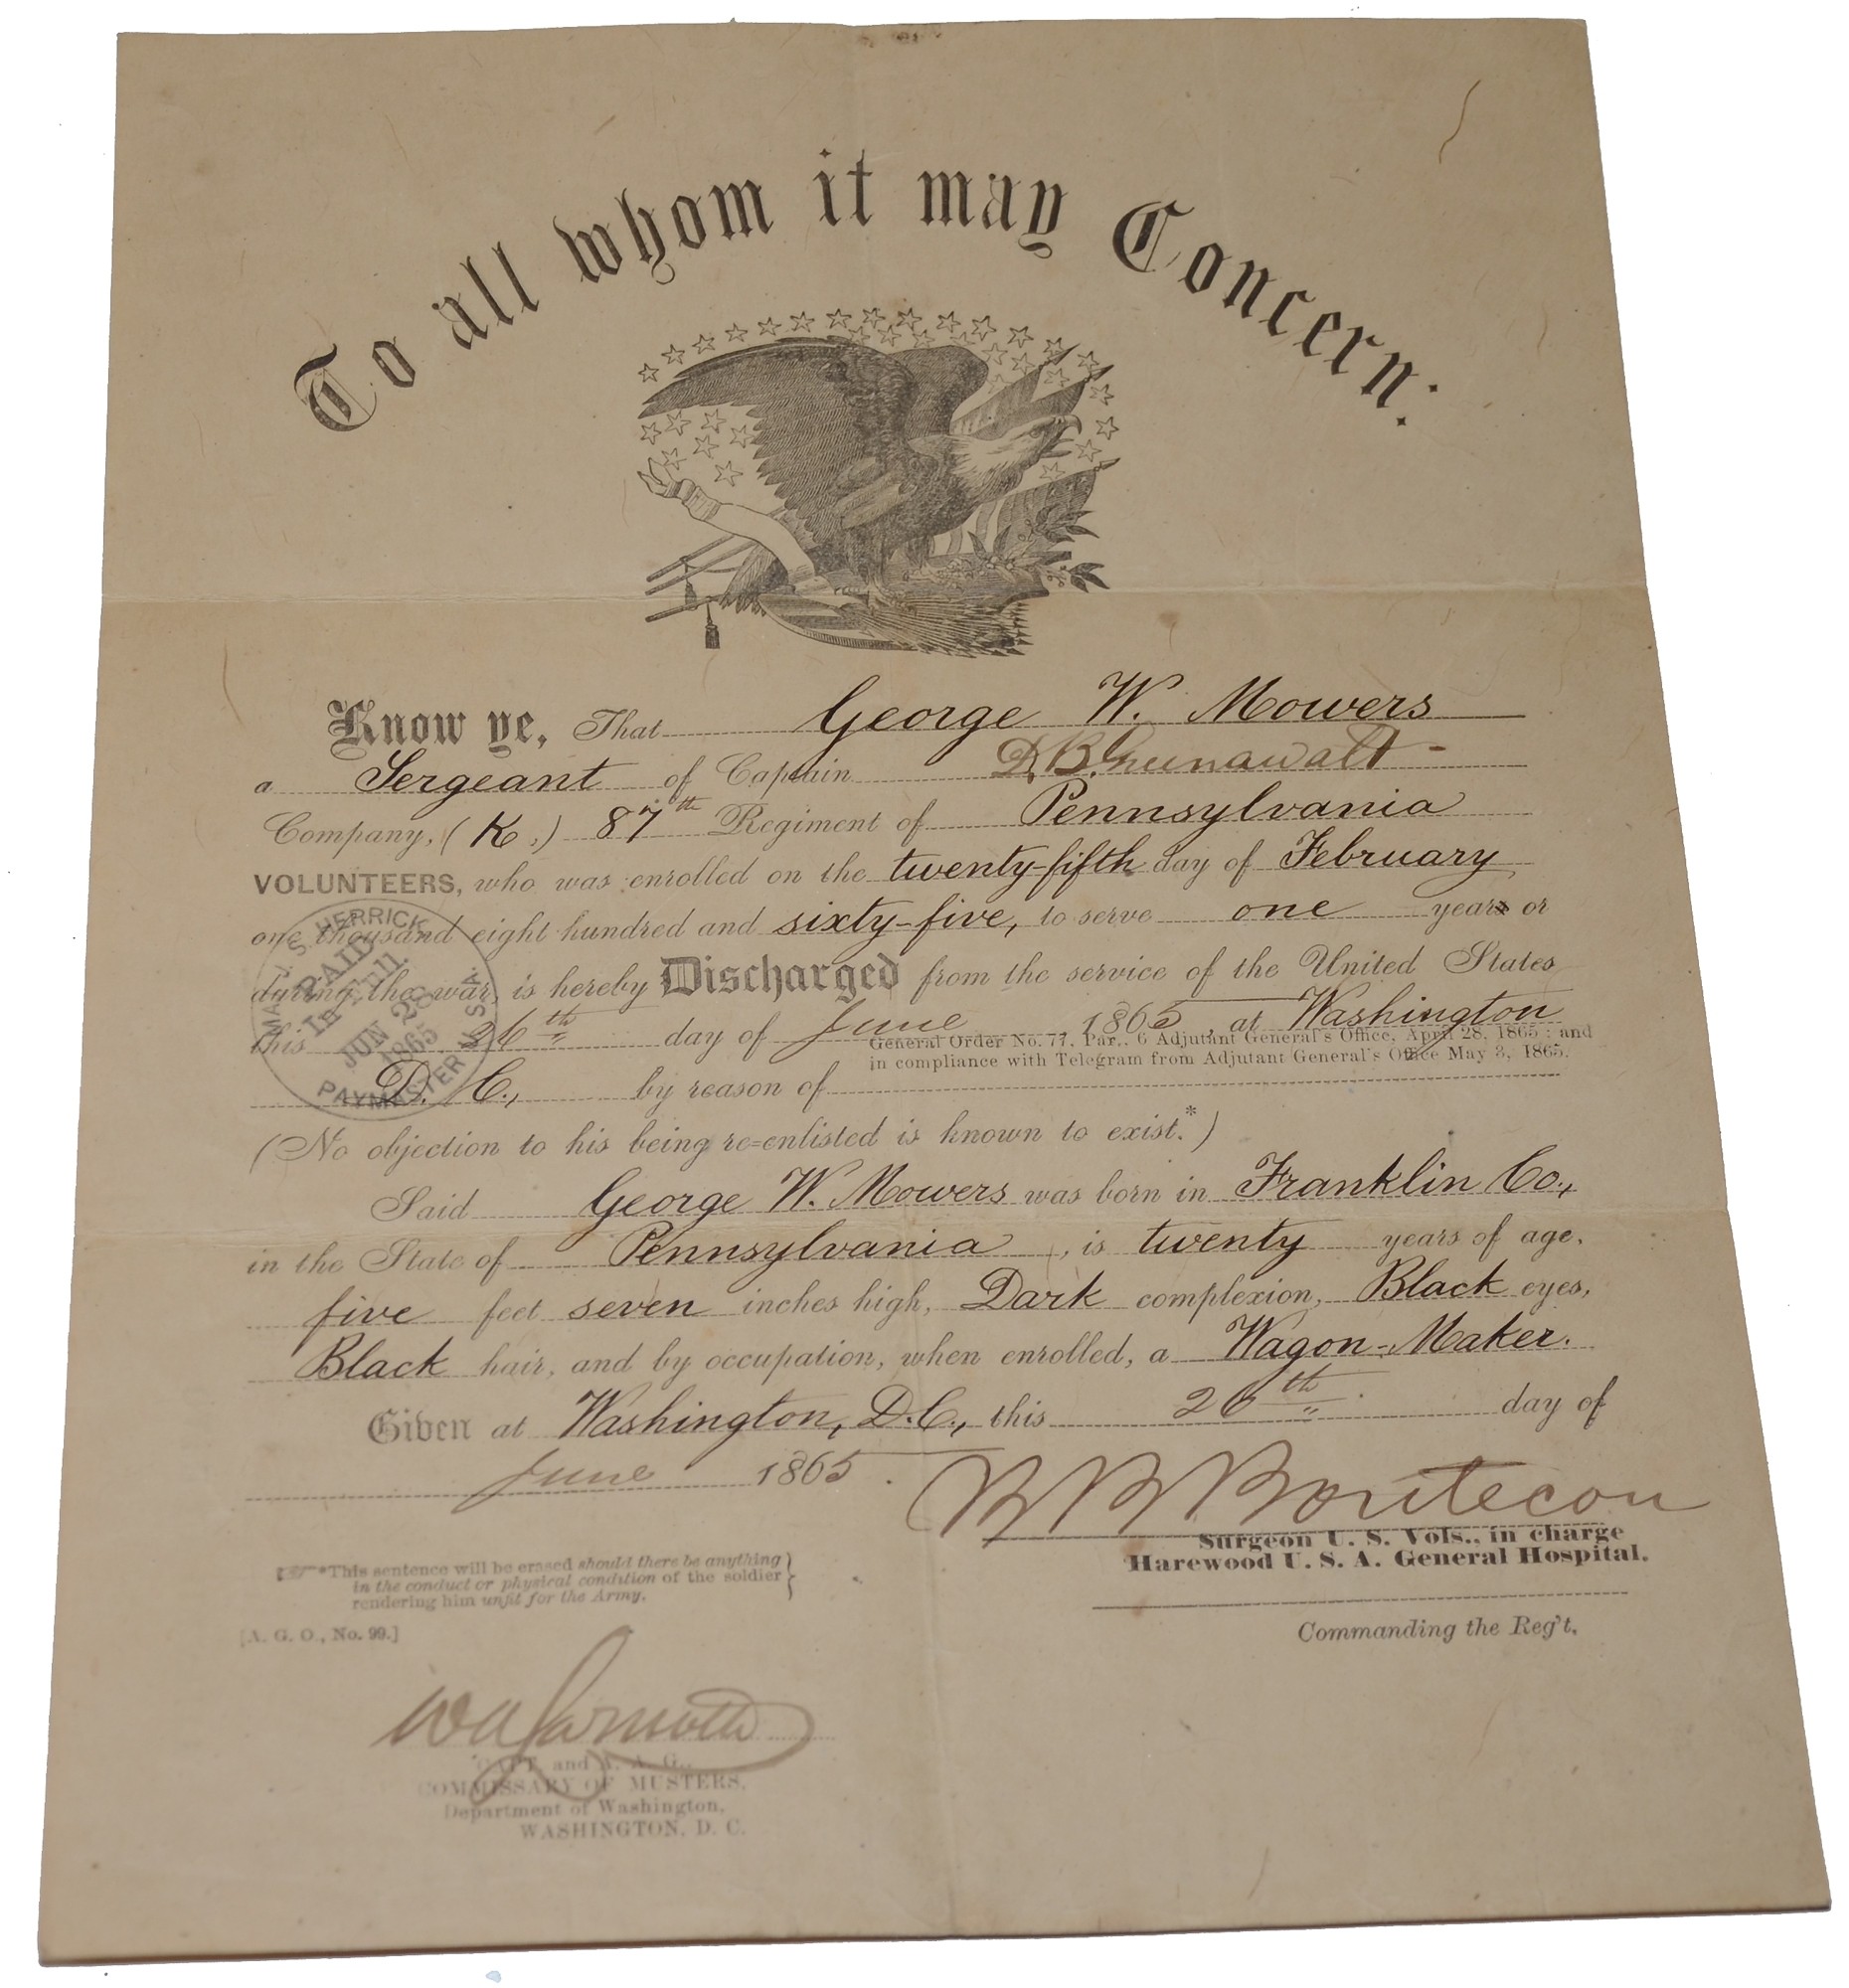 To all whom it may Concern:
Know ye, That George W. Mowers
a Sergeant of Captain D. B. Greenawalt
Company, (K,) 87th Regiment of Pennsylvania
VOLUNTEERS, who was enrolled on the twenty-fifth day of February
one thousand eight hundred and sixty-five, to serve one years or
during the war, is hereby Discharged from the service of the United States
this 26th day of June, 1865, at Washington
General Order No. 77, Par.. 6 Adjutant General's Office, April 28, 1865; and
in compliance with Telegram from Adjutant General's Office May 3, 1865.
D. C., by reason of
(No objection to his being re=enlisted is known to exist.*)
Said George W. Mowers was born in Franklin Co.,
in the State of Pennsylvania, is twenty years of age,
five feet seven inches high, Dark complexion, Black eyes,
Black hair, and by occupation, when enrolled, a Wagon-Maker.
Given at Washington, D.C., this 26th day of
June 1865.
R B Bontecou
Surgeon U. S. Vols., in charge
Harewood U. S. A. General Hospital.
Commanding the Reg't.
*This sentence will be erased should there be anything
in the conduct or physical condition of the soldier
rendering him unfit for the Army.
[A. G. O., No. 99.]
CAPT. and A. A. G.,
COMMISSARY OF MUSTERS,
Department of Washington,
WASHINGTON, D. C.
HERRICK
PAID
In Full.
JUN 26
1865
PAYMASTER U.S.A.